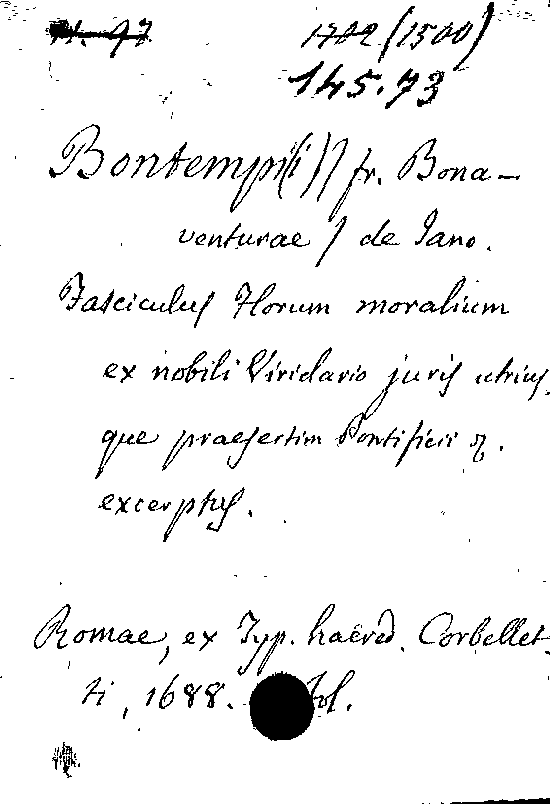 N. 97
1702 (1500)
145.73
Bontempi(i)) fr. Bona-
venturae / de Jano.
Fasciculus Florum moralium
ex nobili Viridario juris utrius-
que praesertim Pontificii
excerptus.
Romae, ex Typ. haered. Corbellet-
ti, 1688. fol.